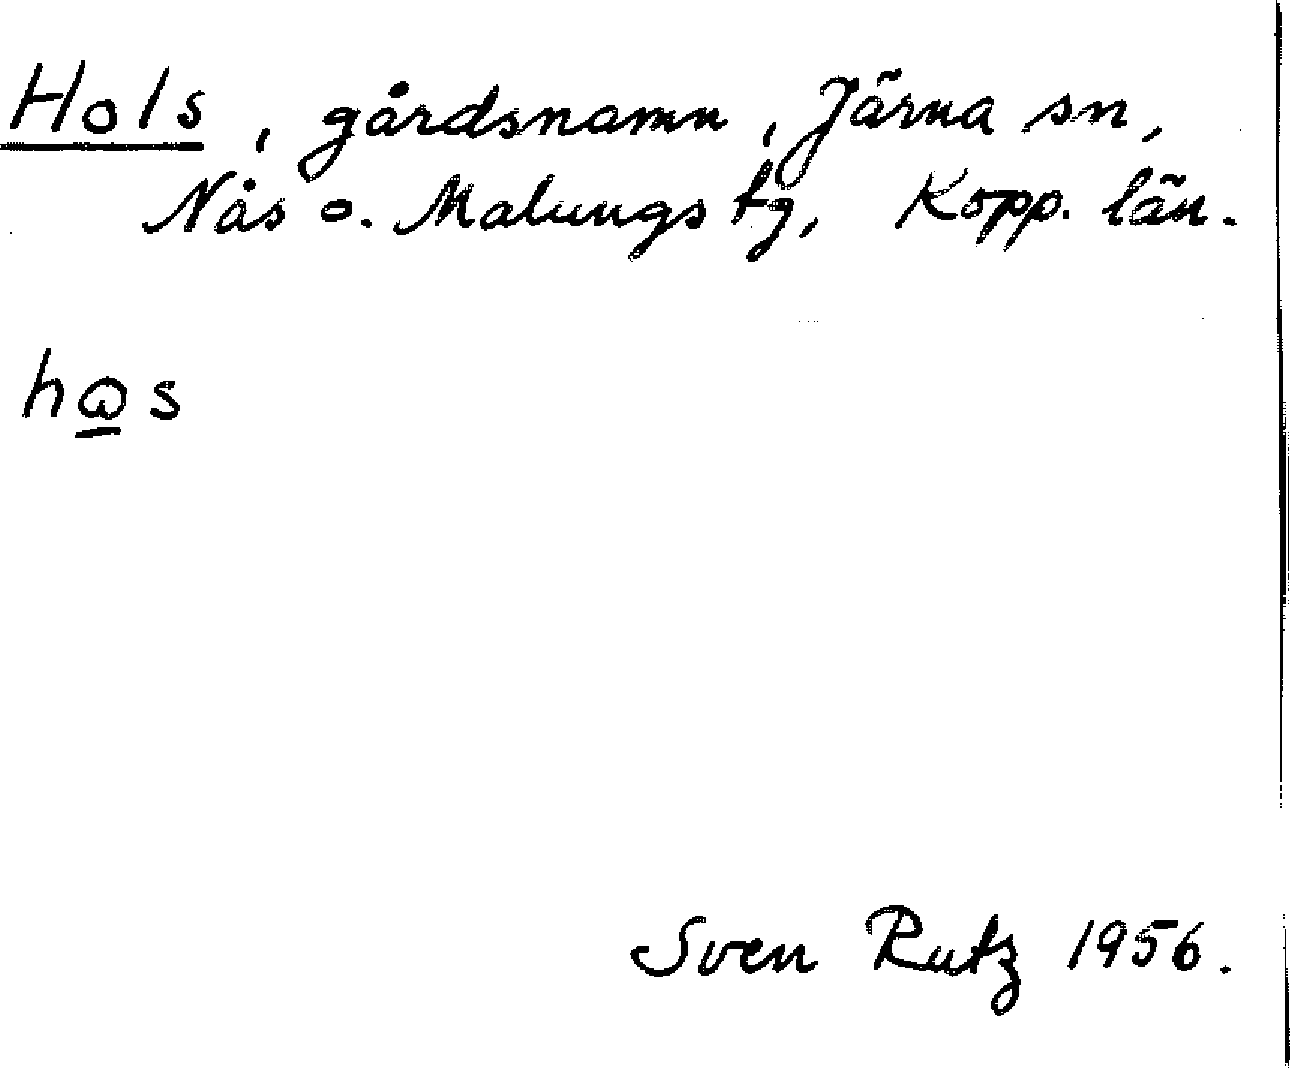 Hols, gårdsnamn, Järna sn,
Nås o. Malungs tg, Kopp. län.
Sven Rutz 1956.